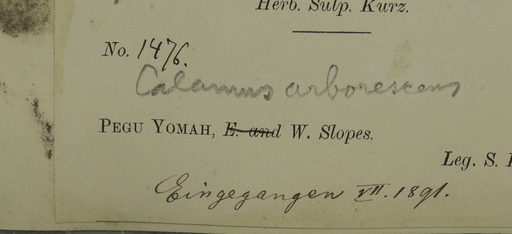 Herb. Sulp. Kurz.
No. 1476.
Calamus arborescens
PEGU YOMAH, E. and W. Slopes.
Leg. S.
Eingegangen VII. 1891.